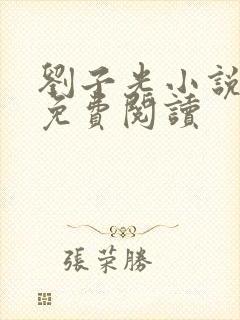 劉子光小說
免費閱讀
張榮勝